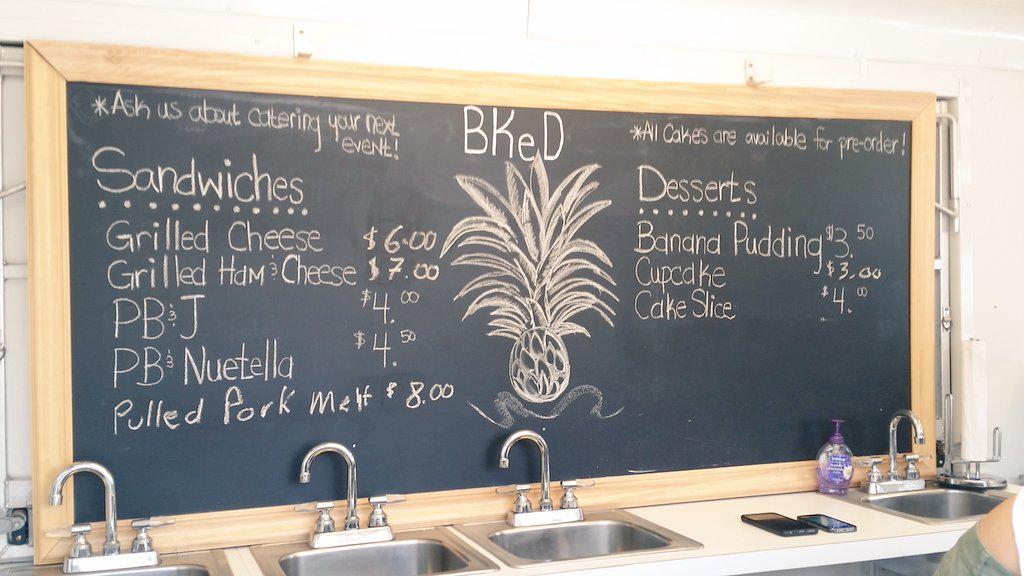 *Ask us about catering your next
event!
BKeD
*All Cakes are available for pre-order!
Sandwiches
Grilled Cheese $6.00
Grilled Ham & Cheese $7.00
PB & J $4.00
PB & Nuetella $4.50
Pulled Pork Melt $8.00
Desserts
Banana Pudding $3.50
Cupcake $3.00
Cake Slice $4.00